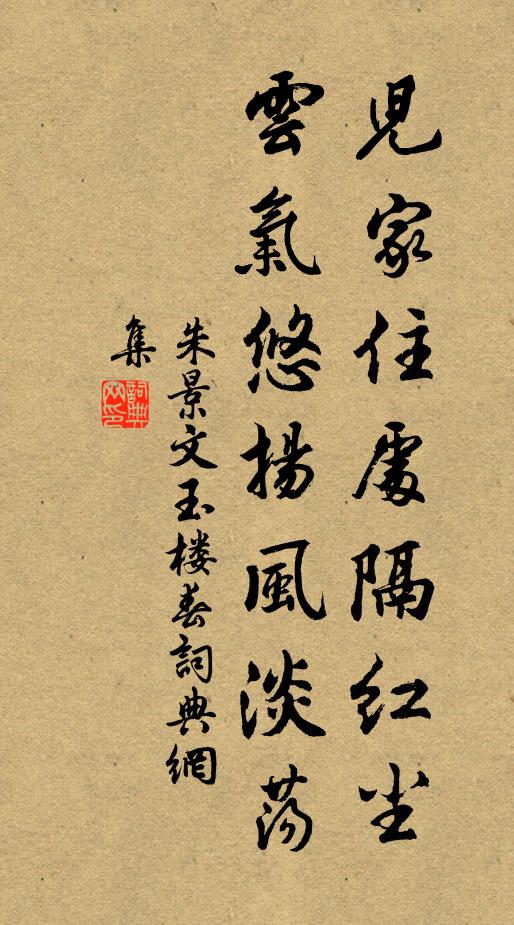 兒家住處隔紅尘
雲氣悠揚風淡荡
朱景文玉楼春詞典網
集
詞典
网印